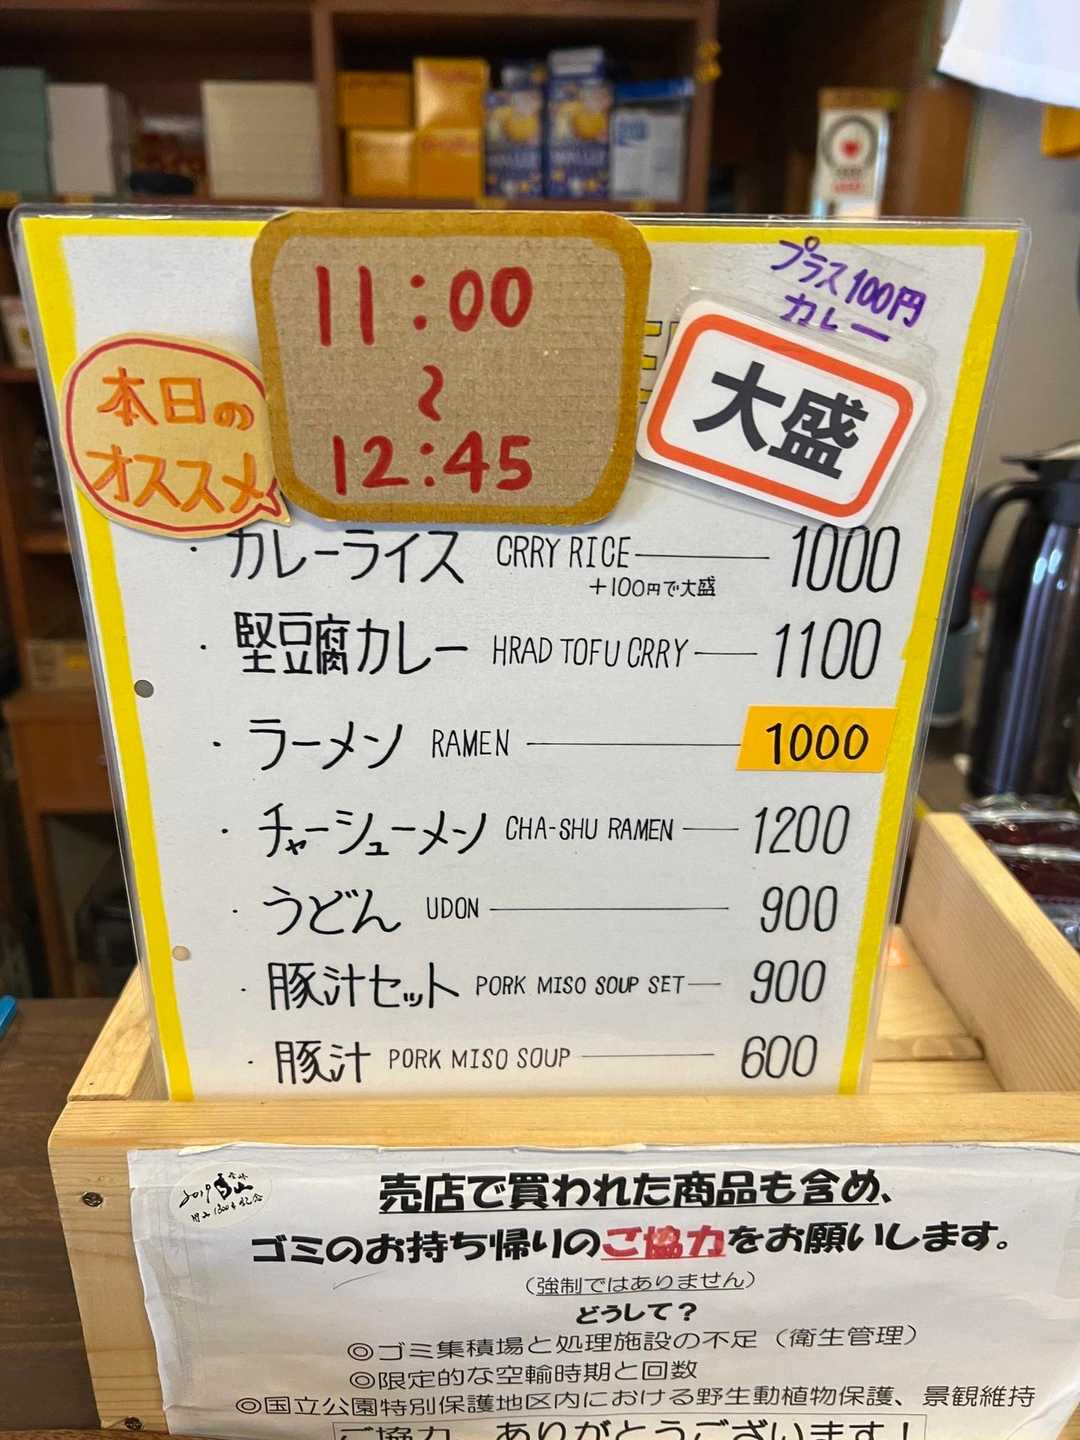 プラス100円
カレー
大盛
11:00
〜
12:45
本日の
オススメ
・カレーライス CRRY RICE 1000
+100円で大盛
・堅豆腐カレー HRAD TOFU CRRY 1100
・ラーメン RAMEN 1000
・チャーシューメン CHA-SHU RAMEN 1200
・うどん UDON 900
・豚汁セット PORK MISO SOUP SET 900
・豚汁 PORK MISO SOUP 600
2019
売店で買われた商品も含め、
ゴミのお持ち帰りのご協力をお願いします。
(強制ではありません)
どうして?
◎ゴミ集積場と処理施設の不足(衛生管理)
◎限定的な空輸時期と回数
◎国立公園特別保護地区内における野生動植物保護、景観維持
ご協力、ありがとうございます!